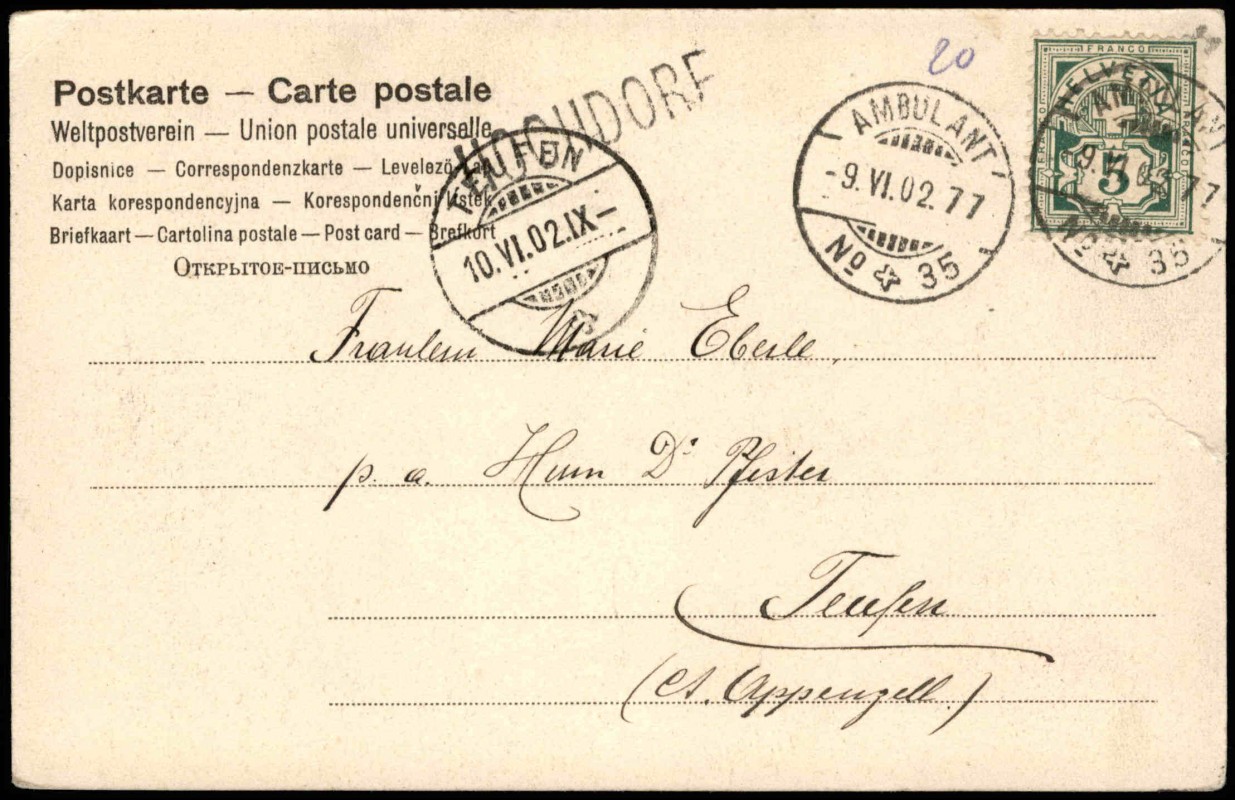 Postkarte — Carte postale
Weltpostverein — Union postale universelle
Dopisnice — Correspondenzkarte — Levelező
Karta korespondencyjna — Korespondenční lístek
Briefkaart — Cartolina postale — Post card — Brefkort
Открытое-письмо
HOCHDORF
TEUFEN
10.VI.02.IX—
20
AMBULANT
-9.VI.02.77
No 35
FRANCO
HELVETIA
5
No 35
Fräulein Marie Eberle,
p. a. Herrn Dr Pfister
Teufen
(Ct. Appenzell.)